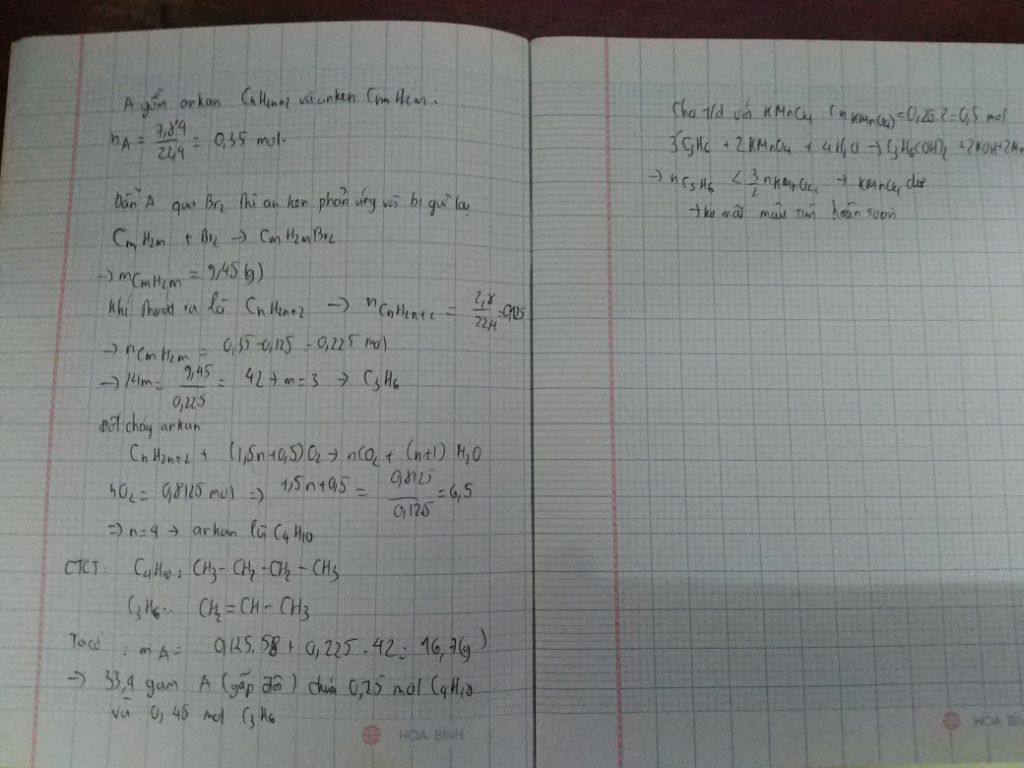 A gồm ankan CnH2n+2 và anken CmH2m.
nA = 7,84/22,4 = 0,35 mol.
Dẫn A qua Br2 thì anken phản ứng và bị giữ lại
CmH2m + Br2 → CmH2mBr2
→ mCmH2m = 9,45(g)
Khí thoát ra là CnH2n+2 → nCnH2n+2 = 2,8/22,4 = 0,125
→ nCmH2m = 0,35-0,125 = 0,225 mol
→ 14m = 9,45/0,225 = 42 → m = 3 → C3H6
Đốt cháy ankan
CnH2n+2 + (1,5n+0,5)O2 → nCO2 + (n+1) H2O
nO2 = 0,8125 mol => 1,5n+0,5 = 0,8125/0,125 = 6,5
=> n=4 → ankan là C4H10
CTCT C4H10: CH3-CH2-CH2-CH3
C3H6.. CH2=CH-CH3
Ta có : mA = 0,125.58 + 0,225.42 = 16,7(g)
→ 33,4 gam A (gấp đôi) chứa 0,25 mol C4H10
và 0,45 mol C3H6
HÒA BÌNH
Cho t/d với KMnO4 (nKMnO4) = 0,25.2 = 0,5 mol
3C3H6 + 2KMnO4 + 4H2O → C3H6(OH)2 + 2KOH + 2Mn
→ nC3H6 < 3/2 nKMnO4 → KMnO4 dư
→ ko mất màu tím hoàn toàn
HÒA BÌ